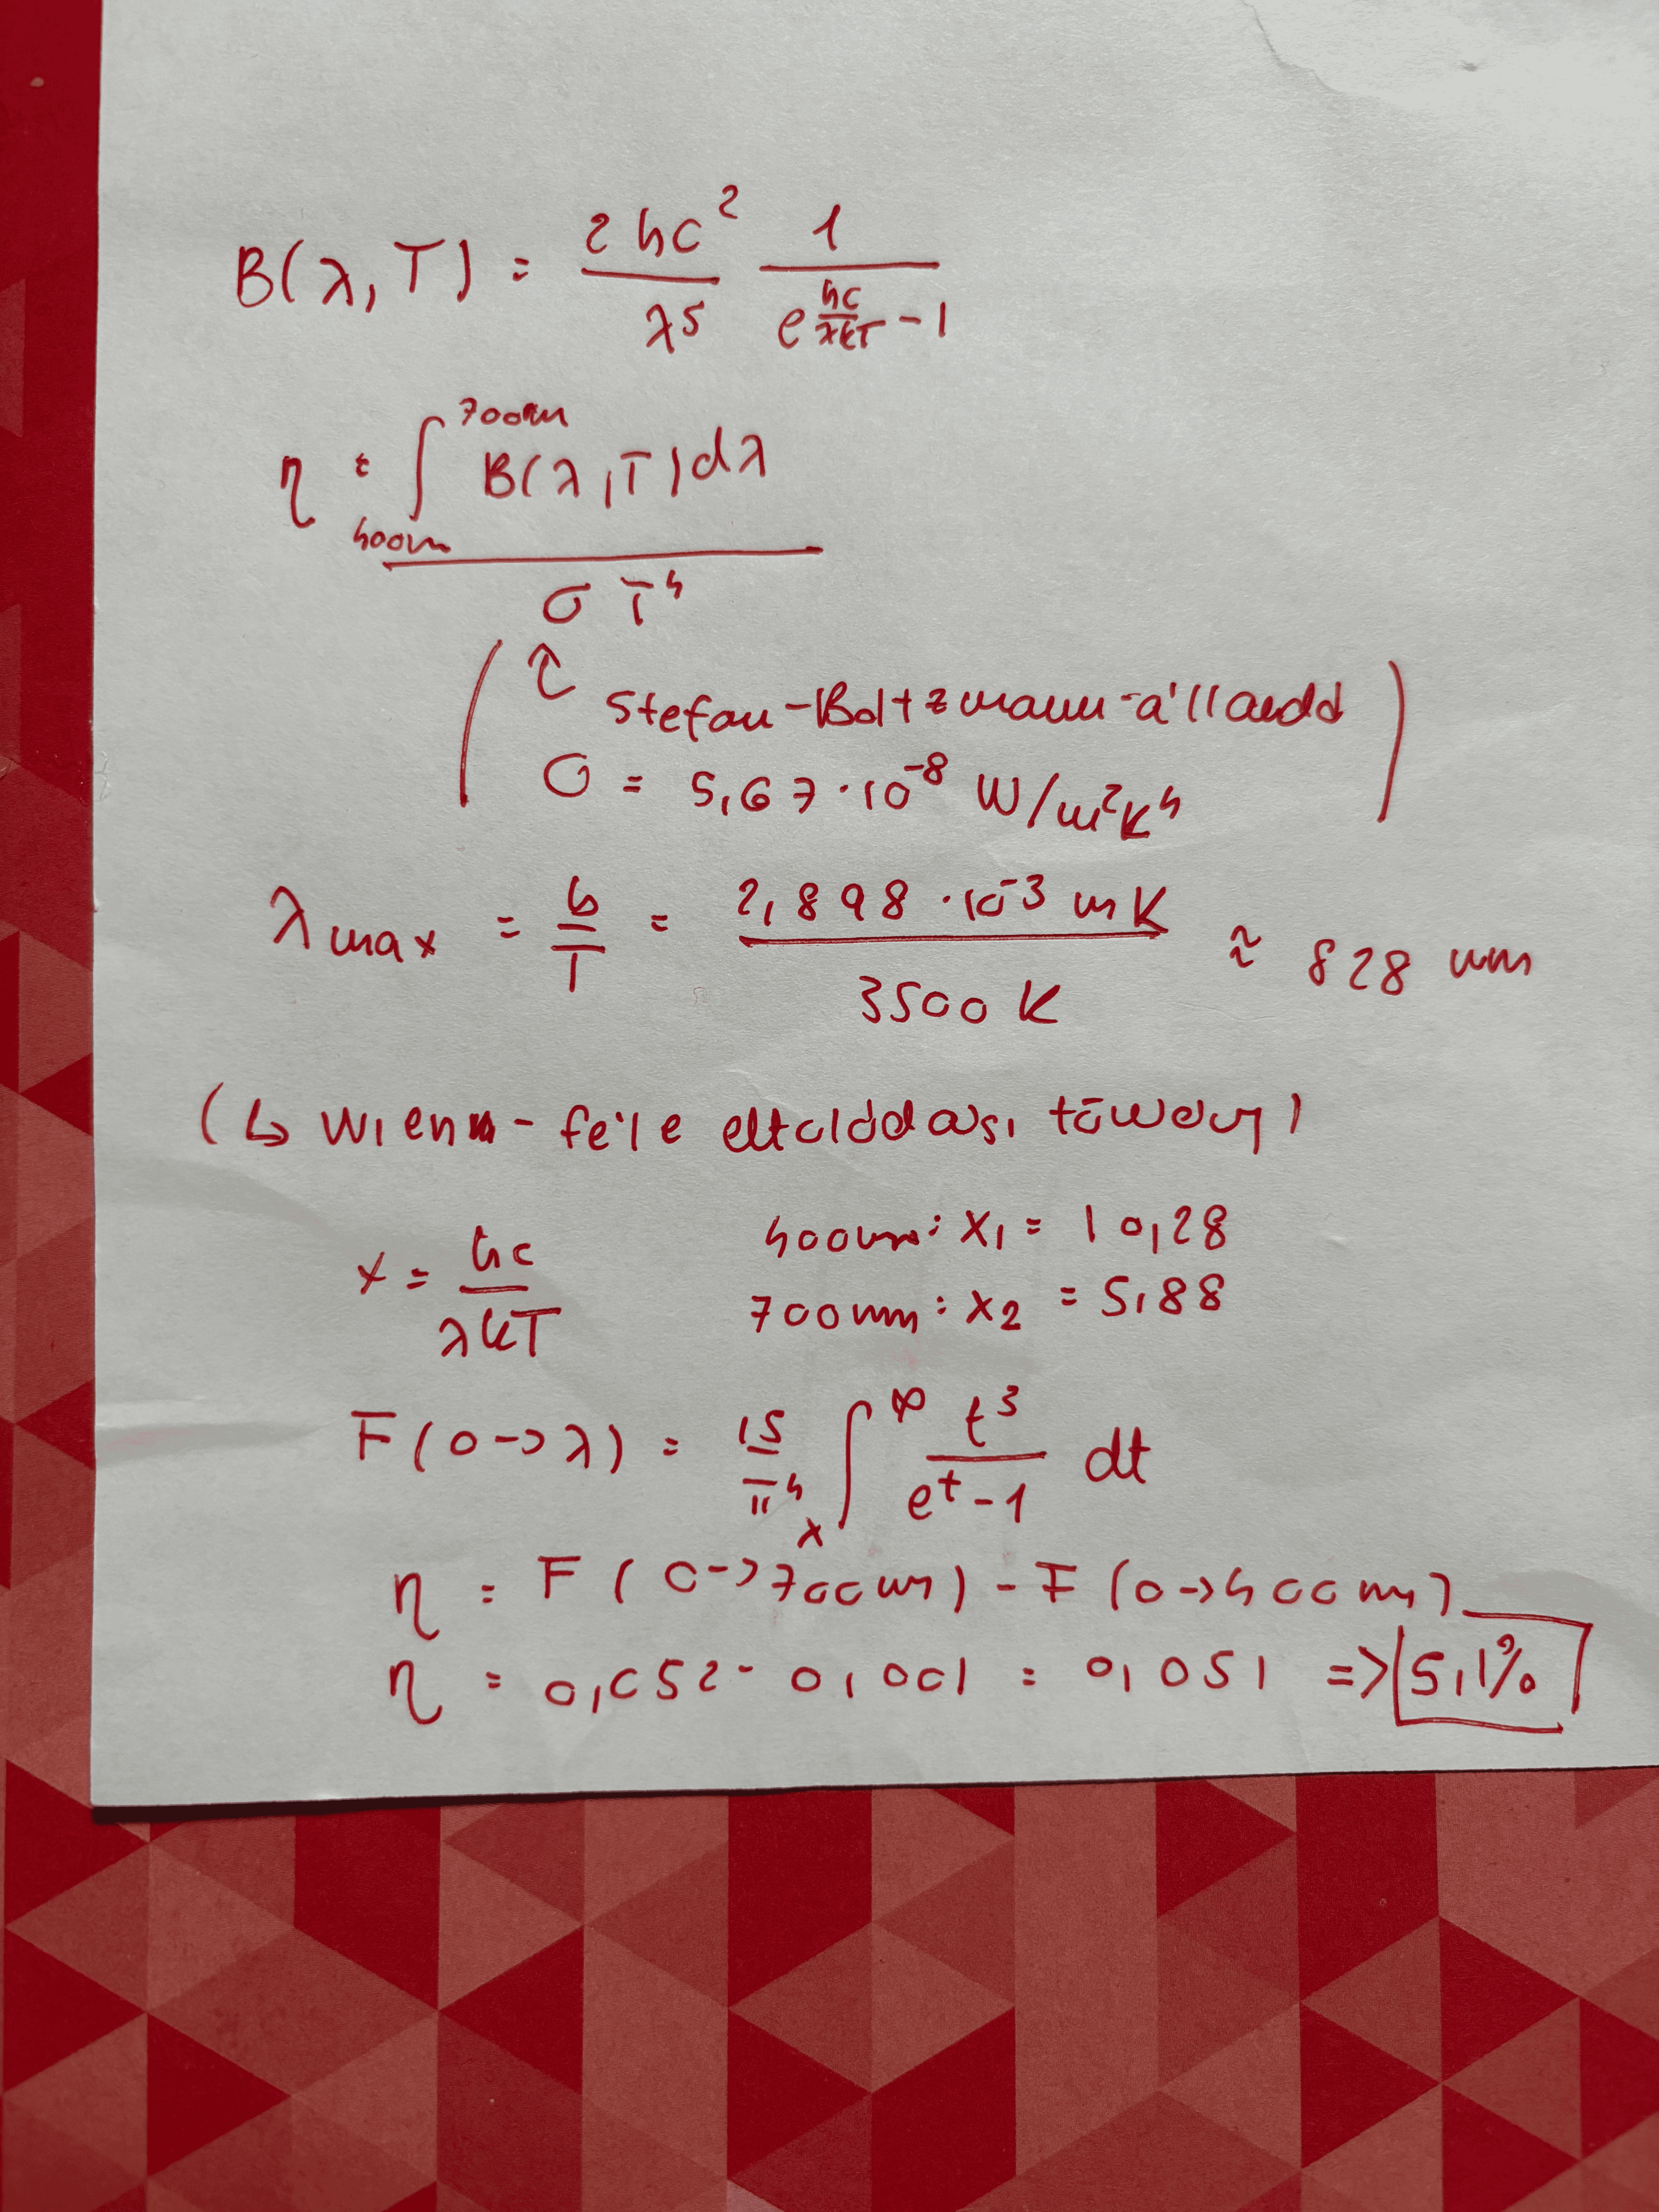 B(λ,T) = 2hc² / λ⁵ 1 / (e^(hc/λkT) - 1)
η = ∫_{400nm}^{700nm} B(λ,T) dλ / σT⁴
(↑ Stefan-Boltzmann-állandó
σ = 5,67·10⁻⁸ W/m²K⁴)
λmax = b/T = 2,898·10⁻³ mK / 3500 K ≈ 828 nm
(↳ Wien-féle eltolódási törvény)
x = hc / λkT 400nm: x₁ = 10,28
700nm: x₂ = 5,88
F(0->λ) = 15/π⁴ ∫_x^∞ t³ / (e^t - 1) dt
η = F(0->700nm) - F(0->400nm)
η = 0,052 - 0,001 = 0,051 => 5,1%